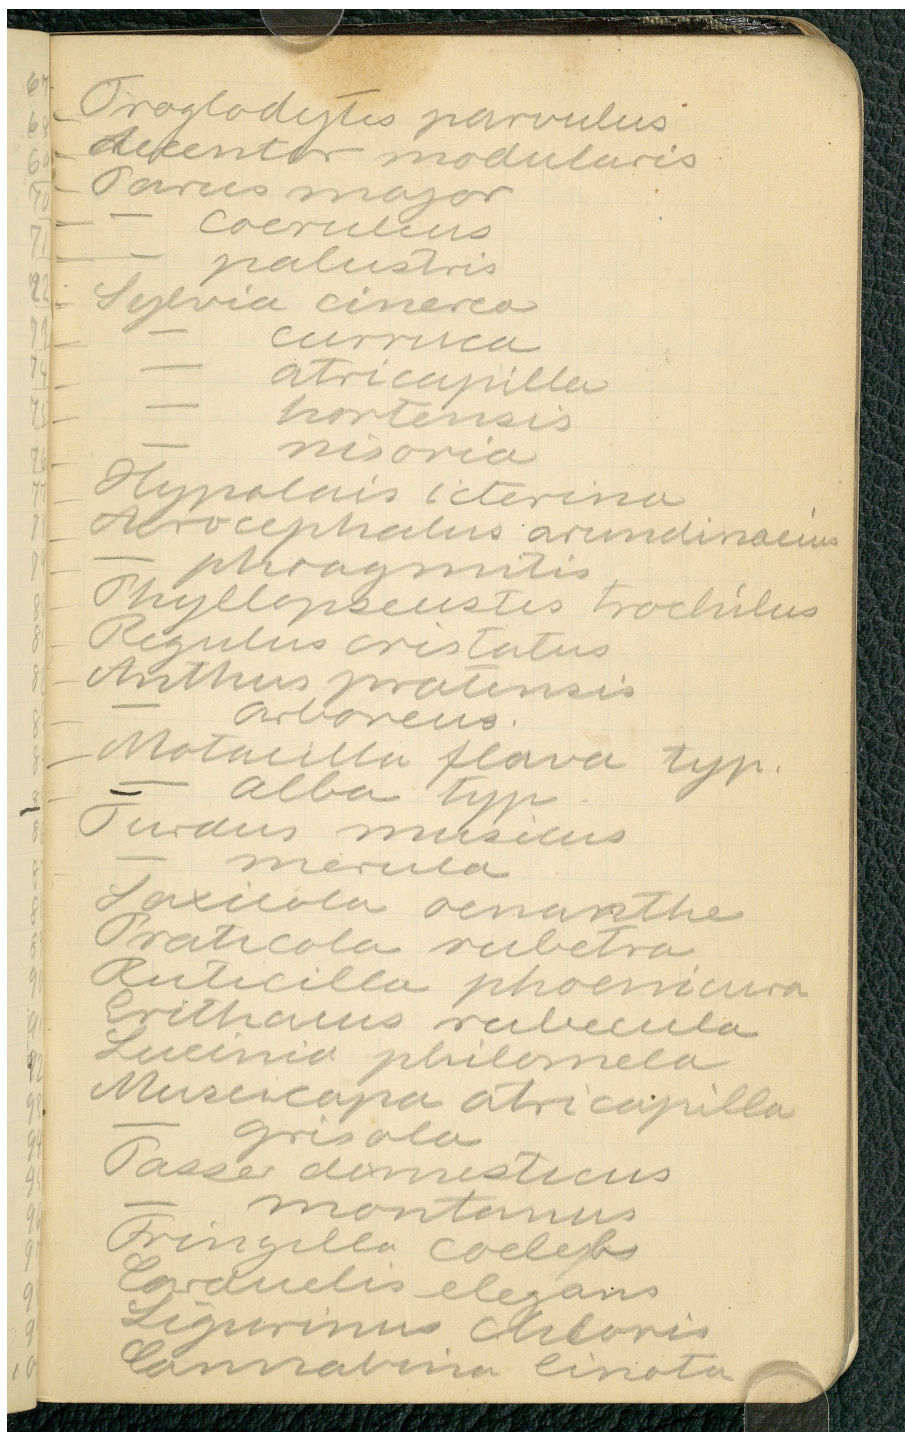 67
68
69
70
71
72
73
74
75
76
77
78
79
Troglodytes parvulus
Accentor modularis
Parus major
— coeruleus
— palustris
Sylvia cinerea
— curruca
— atricapilla
— hortensis
— nisoria
Hypolais icterina
Acrocephalus arundinaceus
— phragmitis
Phyllopseustes trochilus
Regulus cristatus
Anthus pratensis
— arboreus.
Motacilla flava typ.
— alba typ
Turdus musicus
— merula
Saxicola oenanthe
Praticola rubetra
Ruticilla phoenicura
Erithacus rubecula
Luscinia philomela
Muscicapa atricapilla
— grisola
Passer domesticus
— montanus
Fringilla coelebs
Carduelis elegans
Ligurinus chloris
Cannabina linota